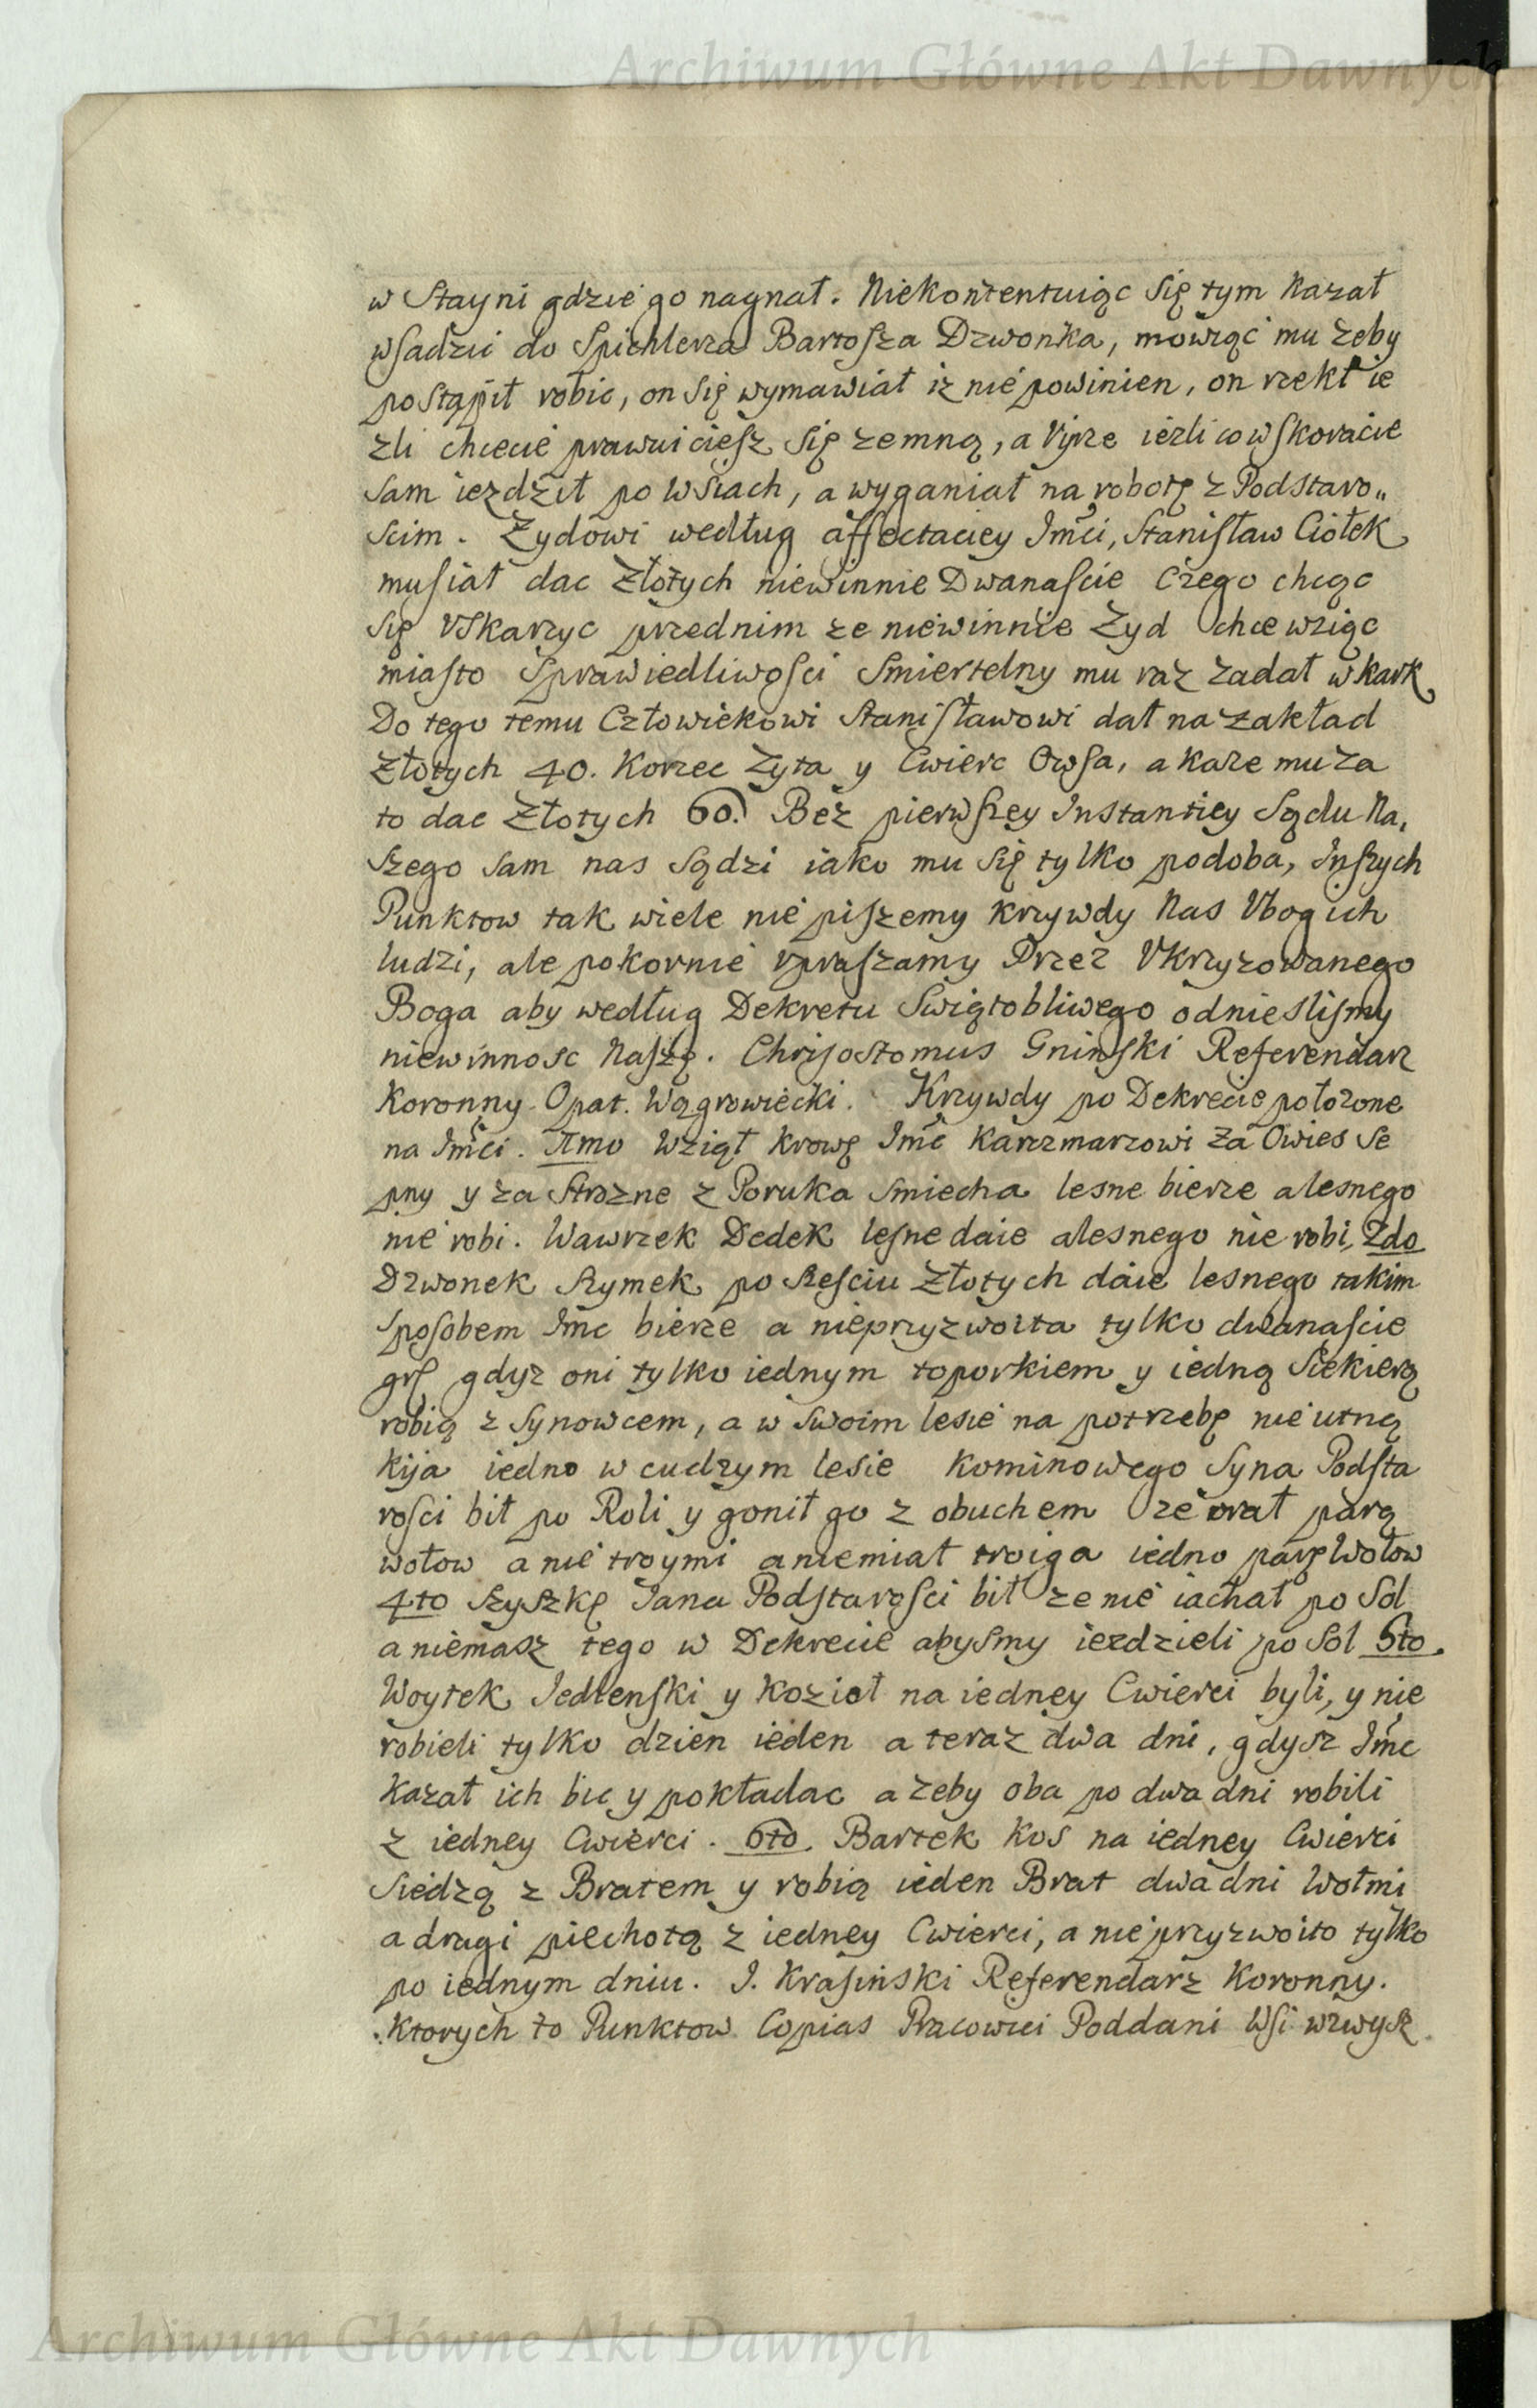 Archiwum Główne Akt Dawnych
w Stayni gdzie go nagnał. Niekontentuiąc się tym Kazał
wsadzic do Spichlerza Bartosza Dzwonka, mowiąc mu zeby
postąpił robic, on się wymawiał iz nie powinien, on rzekł ie
zli chcecie prawuiciesz się zemną, a Vyrze iezli co wskoracie
sam iezdził po Wsiach, a wyganiał na robotę z Podstaro„
scim. Zydowi według affectaciey Imci, Stanisław Ciołek
musiał dac Złotych niewinnie Dwanascie Czego chcąc
się Vskarzyc przednim ze niewinnie Zyd chce wziąc
miasto Sprawiedliwosci Smiertelny mu raz zadał w kark
Do tego temu Człowiekowi Stanisławowi dał na zakład
Złotych 40. Korzec Zyta y Cwierc Owsa, a kaze mu za
to dac Złotych 60. Bez pierwszey Instantiey Sądu Na,
szego sam nas sądzi iako mu się tylko podoba, Inszych
Punktow tak wiele nie piszemy krzywdy Nas Vbogich
ludzi, ale pokornie vpraszamy Przez Vkrzyzowanego
Boga aby według Dekretu Swiątobliwego odnieslismy
niewinnosc Naszę. Chrisostomus Gninski Referendarz
Koronny Opat. Wągrowiecki. Krzywdy po Dekrecie położone
na Imci. Imo Wziął krowę Imc Karczmarzowi Za Owies Se
pny y za Strozne z Poruka Smiecha lesne bierze alesnego
nie robi. Wawrzek Dedek lesne daie alesnego nie robi, 2do
Dzwonek Szymek po szesciu Złotych daie lesnego takim
sposobem Imc bierze a nieprzyzwoita tylko dwanascie
grs gdyz oni tylko iednym toporkiem y iedną Siekierą
robią z Synowcem, a w swoim lesie na potrzebę nie utną
kija iedno w cudzym lesie Kominowego Syna Podsta
rosci bił po Roli y gonił go z obuchem ze orał parą
wołow a nie troymi aniemiał troiga iedno parę Wołow
4to Szyszkę Jana Podstarosci bił ze nie iachał po Sol
a niemasz tego w Dekrecie abysmy iezdzieli po Sol 5to.
Woytek Jedlenski y Kozioł na iedney Cwierci byli, y nie
robieli tylko dzien ieden a teraz dwa dni, gdysz Imc
Kazał ich bic y pokładac a zeby oba po dwa dni robili
z iedney Cwierci. 6to. Bartek Kos na iedney Cwierci
Siedzą z Bratem y robią ieden Brat dwa dni Wołmi
a drugi piechotą z iedney Cwierci, a nieprzyzwoito tylko
po iednym dniu. I. Krasinski Referendarz Koronny.
Ktorych to Punktow Copias Pracowici Poddani Wsi wzwysz
Archiwum Główne Akt Dawnych